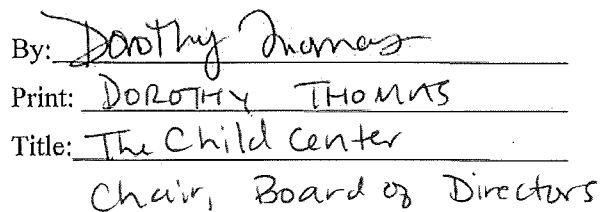 By: Dorothy Thomas
Print: DOROTHY THOMAS
Title: The Child Center
Chair, Board of Directors